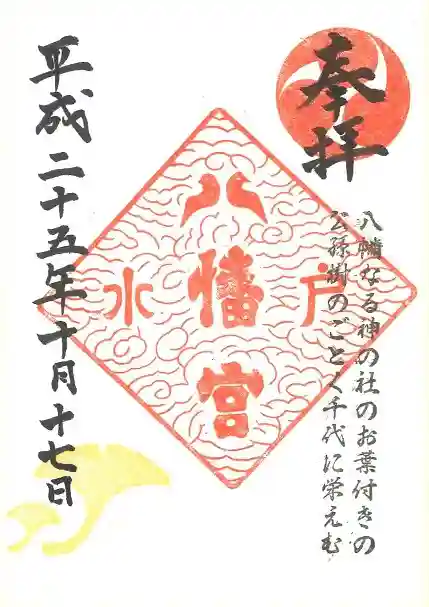 奉拝
八幡なる神の社のお葉付きの
公孫樹のごとく千代に栄えむ
八幡宮
水戸
平成二十五年十月十七日